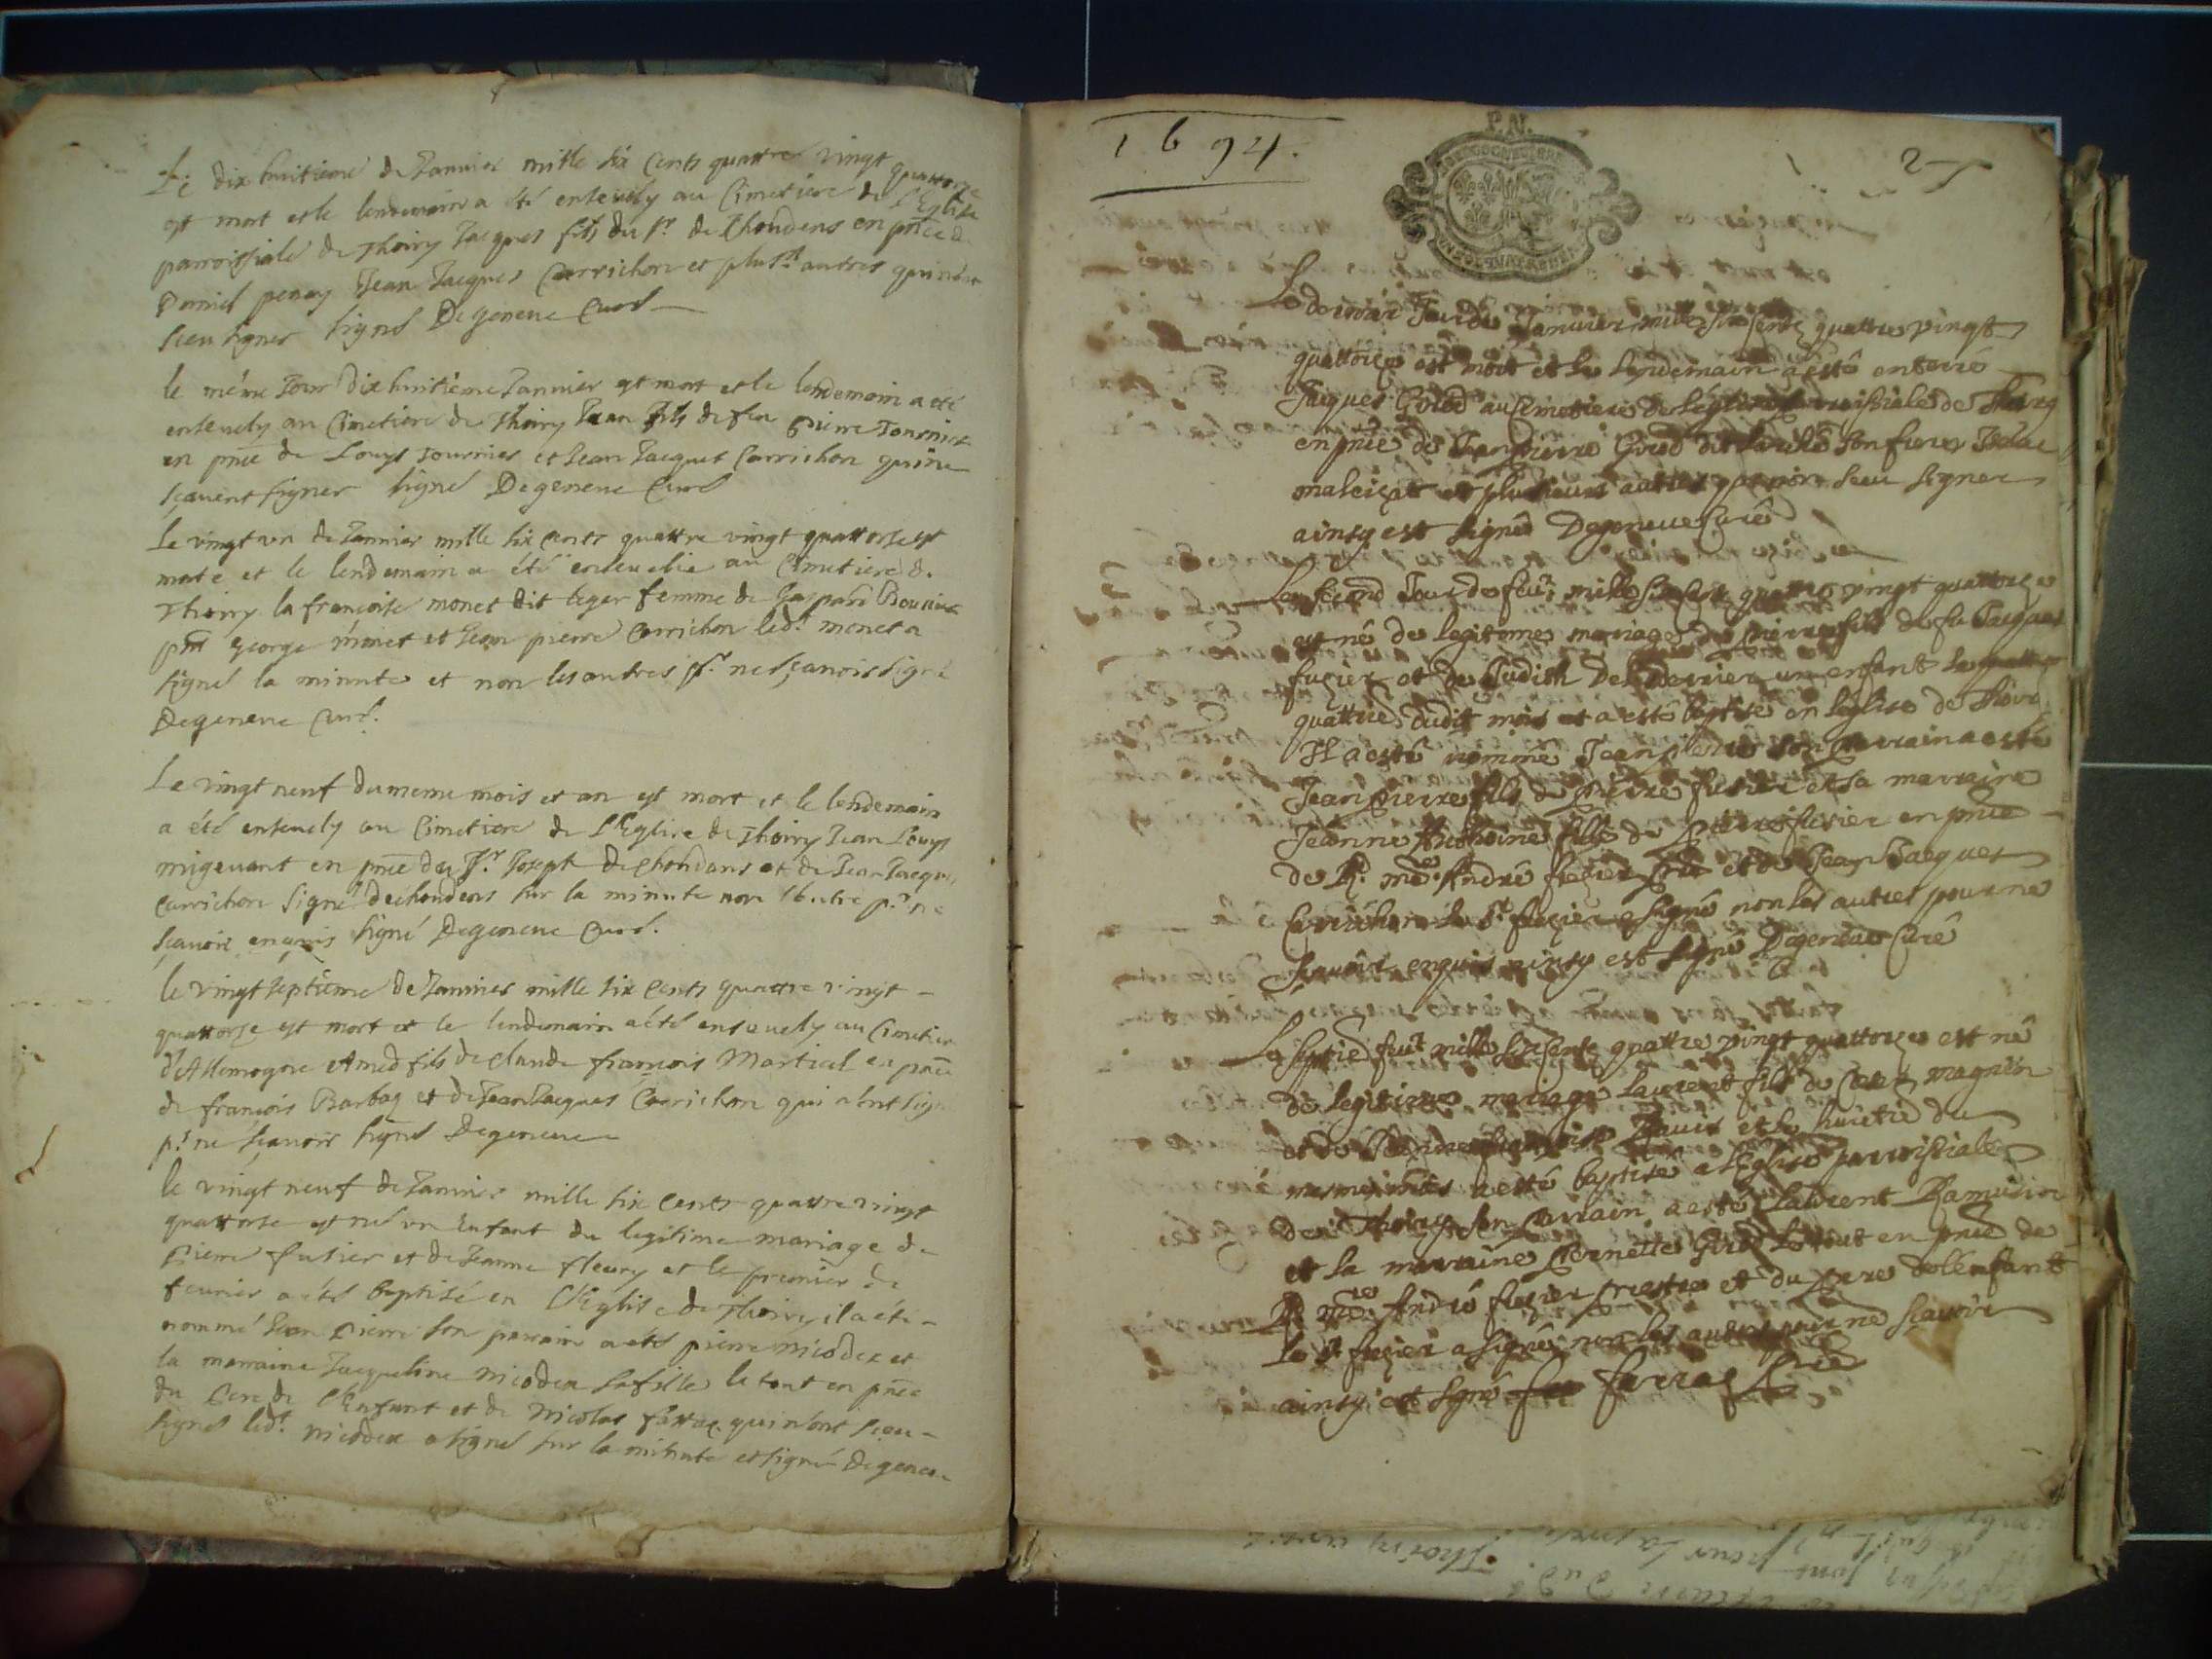 Le dix huitieme de Janvier mille six cents quattre vingt quattorze
est mort et le lendemain a été ensevely au Cimetiere de l'Eglise
parroissiale de Thoiry Jacques fils du Sr. de Chondens en pnce de
Daniel penay Jean Jacques Carrichon et plusrs autres qui n'ont
sceu signer signé Degeneve Curé
le méme Jour dix huitieme Janvier est mort et le lendemain a été
ensevely au Cimetiere de Thoiry Jean fils de feu Pierre Tournier
en pnce de Louys Tournier et Jean Jacques Carrichon qui ne
sçavent signer signé Degeneve Curé
Le vingt un de Janvier mille six cents quattre vingt quattorze est
morte et le lendemain a été ensevelie au Cimetiere de
Thoiry la françoise monet dit leger femme de Gaspard
pnt George monet et Jean pierre Carrichon ledt. monet a
signé la minute et non les autres pr. ne sçavoir signé
Degeneve Curé.
Le vingt neuf du meme mois et an est mort et le lendemain
a été ensevely au Cimetiere de l'Eglise de Thoiry Jean Louys
migevant en pnce du Sr. Joseph de Chondens et de Jean Jacques
Carrichon signé dechondens sur la minute non l'autre pr. ne
sçavoir enquis signé Degeneve Curé.
le vingt septieme de Janvier mille six cents quattre vingt
quattorze est mort et le lendemain a été ensevely au Cimetiere
d'Allemogne Amed fils de Claude françois Martial en pnce
de françois Barbaz et de Jean Jacques Carrichon qui n'ont signé
pr. ne sçavoir signé Degeneve
le vingt neuf de Janvier mille six cents quattre vingt
quattorze est né un Enfant du legitime mariage de
Pierre fusier et de Jeanne fleury et le premier de
fevrier a été baptisé en l'Eglise de Thoiry il a été
nommé Jean Pierre son parrain a été pierre nicoder et
la marraine Jacqueline nicoder sa fille le tout en pnce
du Pere de l'Enfant et de Nicolas farraz qui n'ont sceu
signer ledt. nicoder a signé sur la minute et signé Degeneve
1694.
27
Le dernier Jour de Janvier mille six cents quattre vingt
quattorze est mort et le lendemain a esté enterré
Jacques Girod au cimetiere de l'église parroissiale de Thoiry
en pnce de Jean pierre Girod dit son frere Isaac
et plusieurs autres qui n'ont sceu signer
ainsy est signé Degeneve Curé
Le second Jour de fevr. mille six cents quattre vingt quattorze
est né de legitime mariage de pierre fils de fu Jacques
fuzier et de Judith un enfant le
quattre dudit mois et a esté baptisé en l'eglise de Thoiry
Il a esté nommé Jean pierre son parrain a esté
Jean Pierre fils de Pierre fusier et sa marraine
Jeanne Anthoine fille de Pierre fusier en pnce
de Rd. mre. André fuzier Ptre et de Jean Jacques
Carrichon le Sr fuzier a signé non les autres pour ne
sçavoir enquis ainsy est signé Degeneve Curé
Le septie fevr mille six cents quattre vingt quattorze est né
de legitime mariage Laurent fils de magnin
et de et le huictie du
mesme mois a esté baptisé a l'Eglise parroissiale
de Thoiry son parrain a esté Laurent Ramusin
et la marraine Pernette Girod le tout en pnce de
Rd mre André fuzier prestre et du pere de l'enfant
Le Sr fuzier a signé non les autres pour ne sçavoir
ainsy est signé farraz